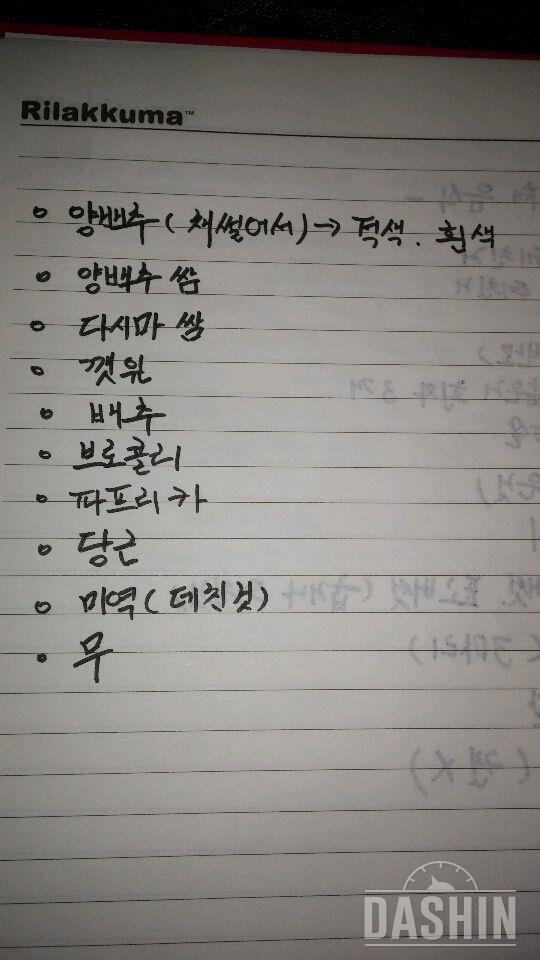 Rilakkuma™
• 양배추 (채썰어서) → 적색. 흰색
• 양배추 쌈
• 다시마 쌈
• 깻잎
• 배추
• 브로콜리
• 파프리카
• 당근
• 미역 (데친것)
• 무
DASHIN